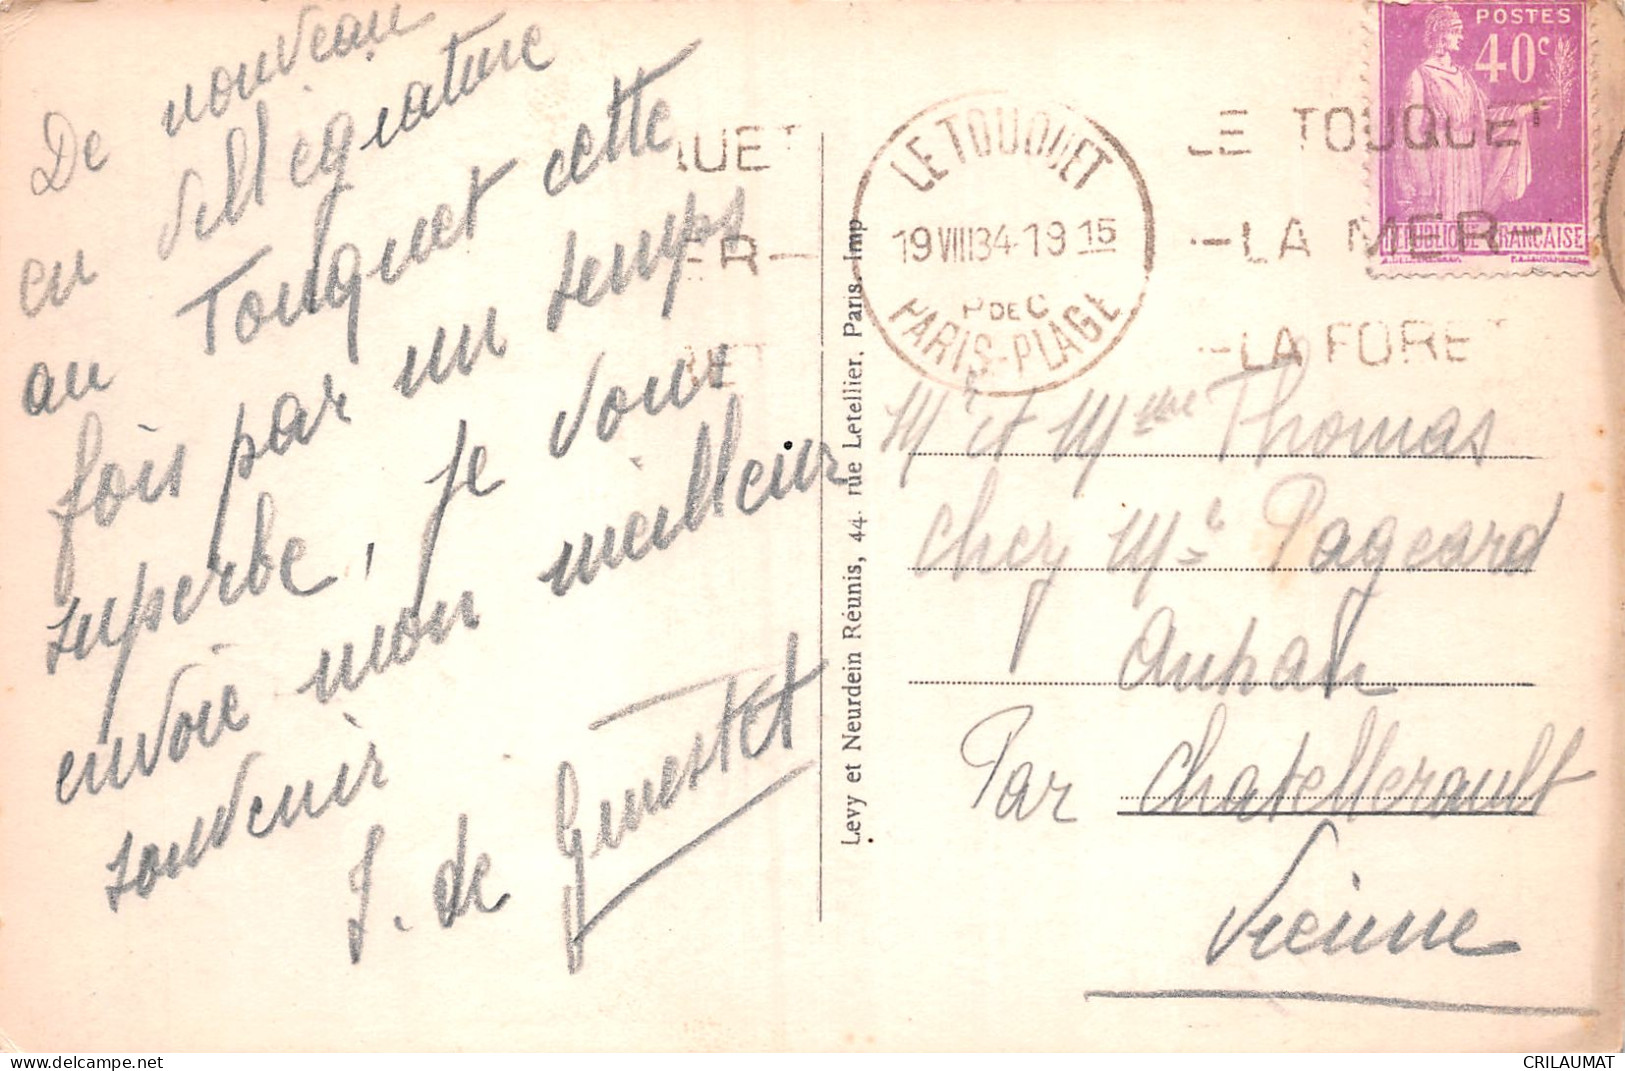 De nouveau
en villégiature
au Touquet cette
fois par un temps
superbe, je vous
envoie mon meilleur
souvenir
J. de Genestet
Levy et Neurdein Réunis, 44 rue Letellier, Paris. Imp
POSTES
40c
REPUBLIQUE FRANCAISE
LE TOUQUET
19 VIII 34-19 15
P DE C
PARIS-PLAGE
LE TOUQUET
-LA MER-
-LA FORET
QUET
ER-
RET
Mr et Mme Thomas
chez Mr Pageard
Par Chatellerault
Vienne
https://www.delcampe.net
CRILAUMAT